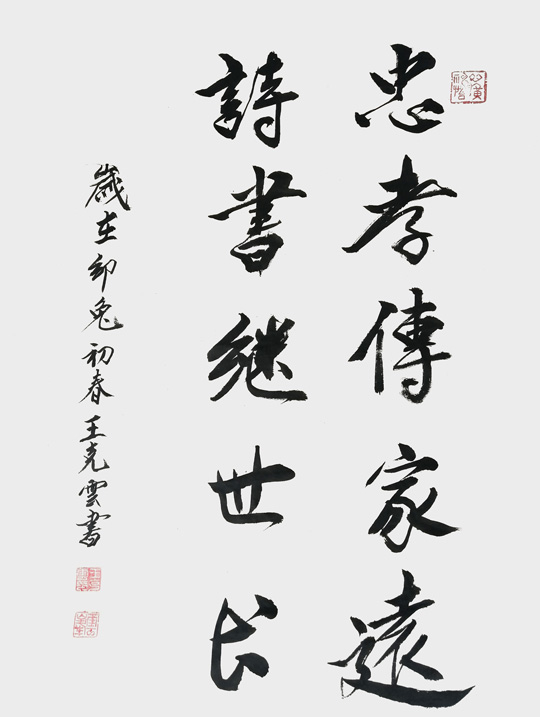 忠孝傳家遠
詩書继世长
歲在卯兔初春王克雲書